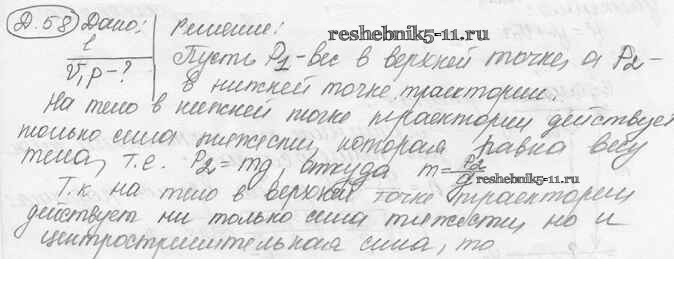 Д.58 Дано: Решение:
l
V, P - ?
Пусть P1 - вес в верхней точке, а P2 -
в нижней точке траектории.
На тело в нижней точке траектории действует
только сила тяжести, которая равна весу
тела, т.е. P2 = mg, откуда m = P2/g
Т.к на тело в верхней точке траектории
действует ни только сила тяжести, но и
центростремительная сила, то
reshebnik5-11.ru
www.reshebnik5-11.ru
www.reshebnik5-11.ru